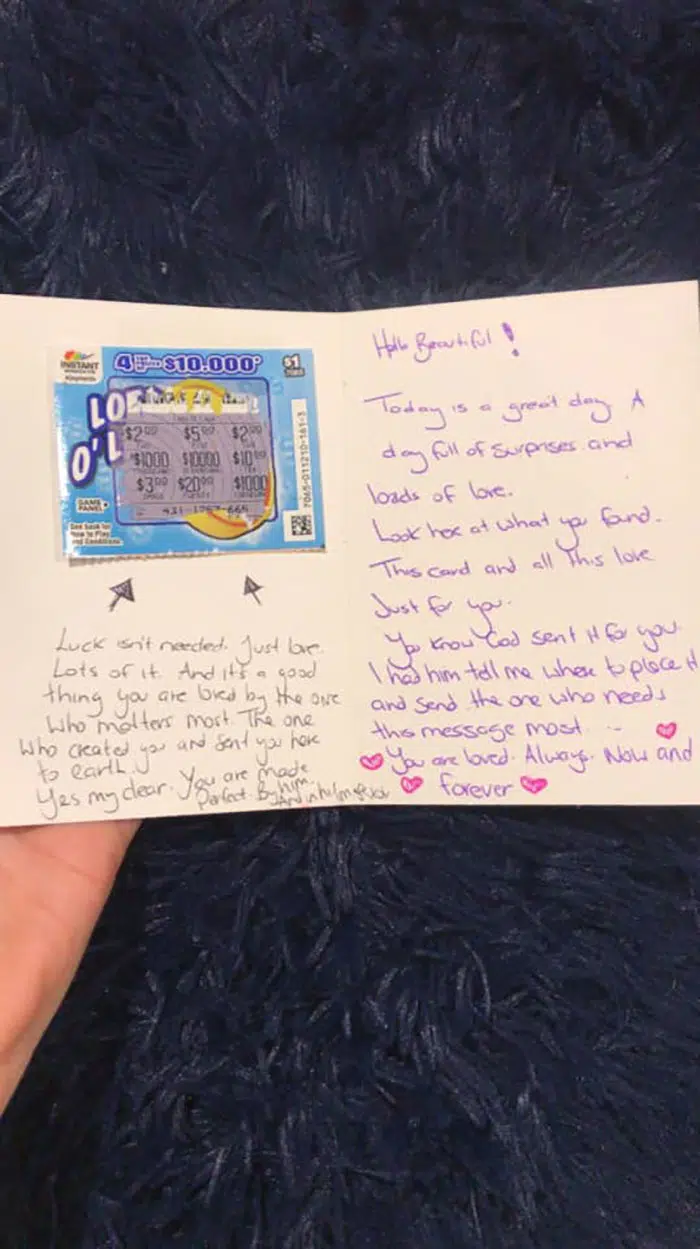 INSTANT
4 $10,000
$1
LO
O'L
$2.00 $5.00 $2.00
$1000 $10000 $10.00
$3.00 $20.00 $1000
GAME
PANEL
See back for
How to Play
and Conditions
7065-011210-161-3
Luck isn't needed. Just love.
Lots of it. And it's a good
thing you are loved by the one
who matters most. The one
who created you and sent you here
to earth.
Yes my dear. You are made
Perfect. By him.
And in him
Hello Beautiful!
Today is a great day. A
day full of surprises and
loads of love.
Look here at what you found.
This card and all this love
Just for you.
You know God sent it for you.
I had him tell me where to place it
and send the one who needs
this message most. ..
You are loved. Always. Now and
forever